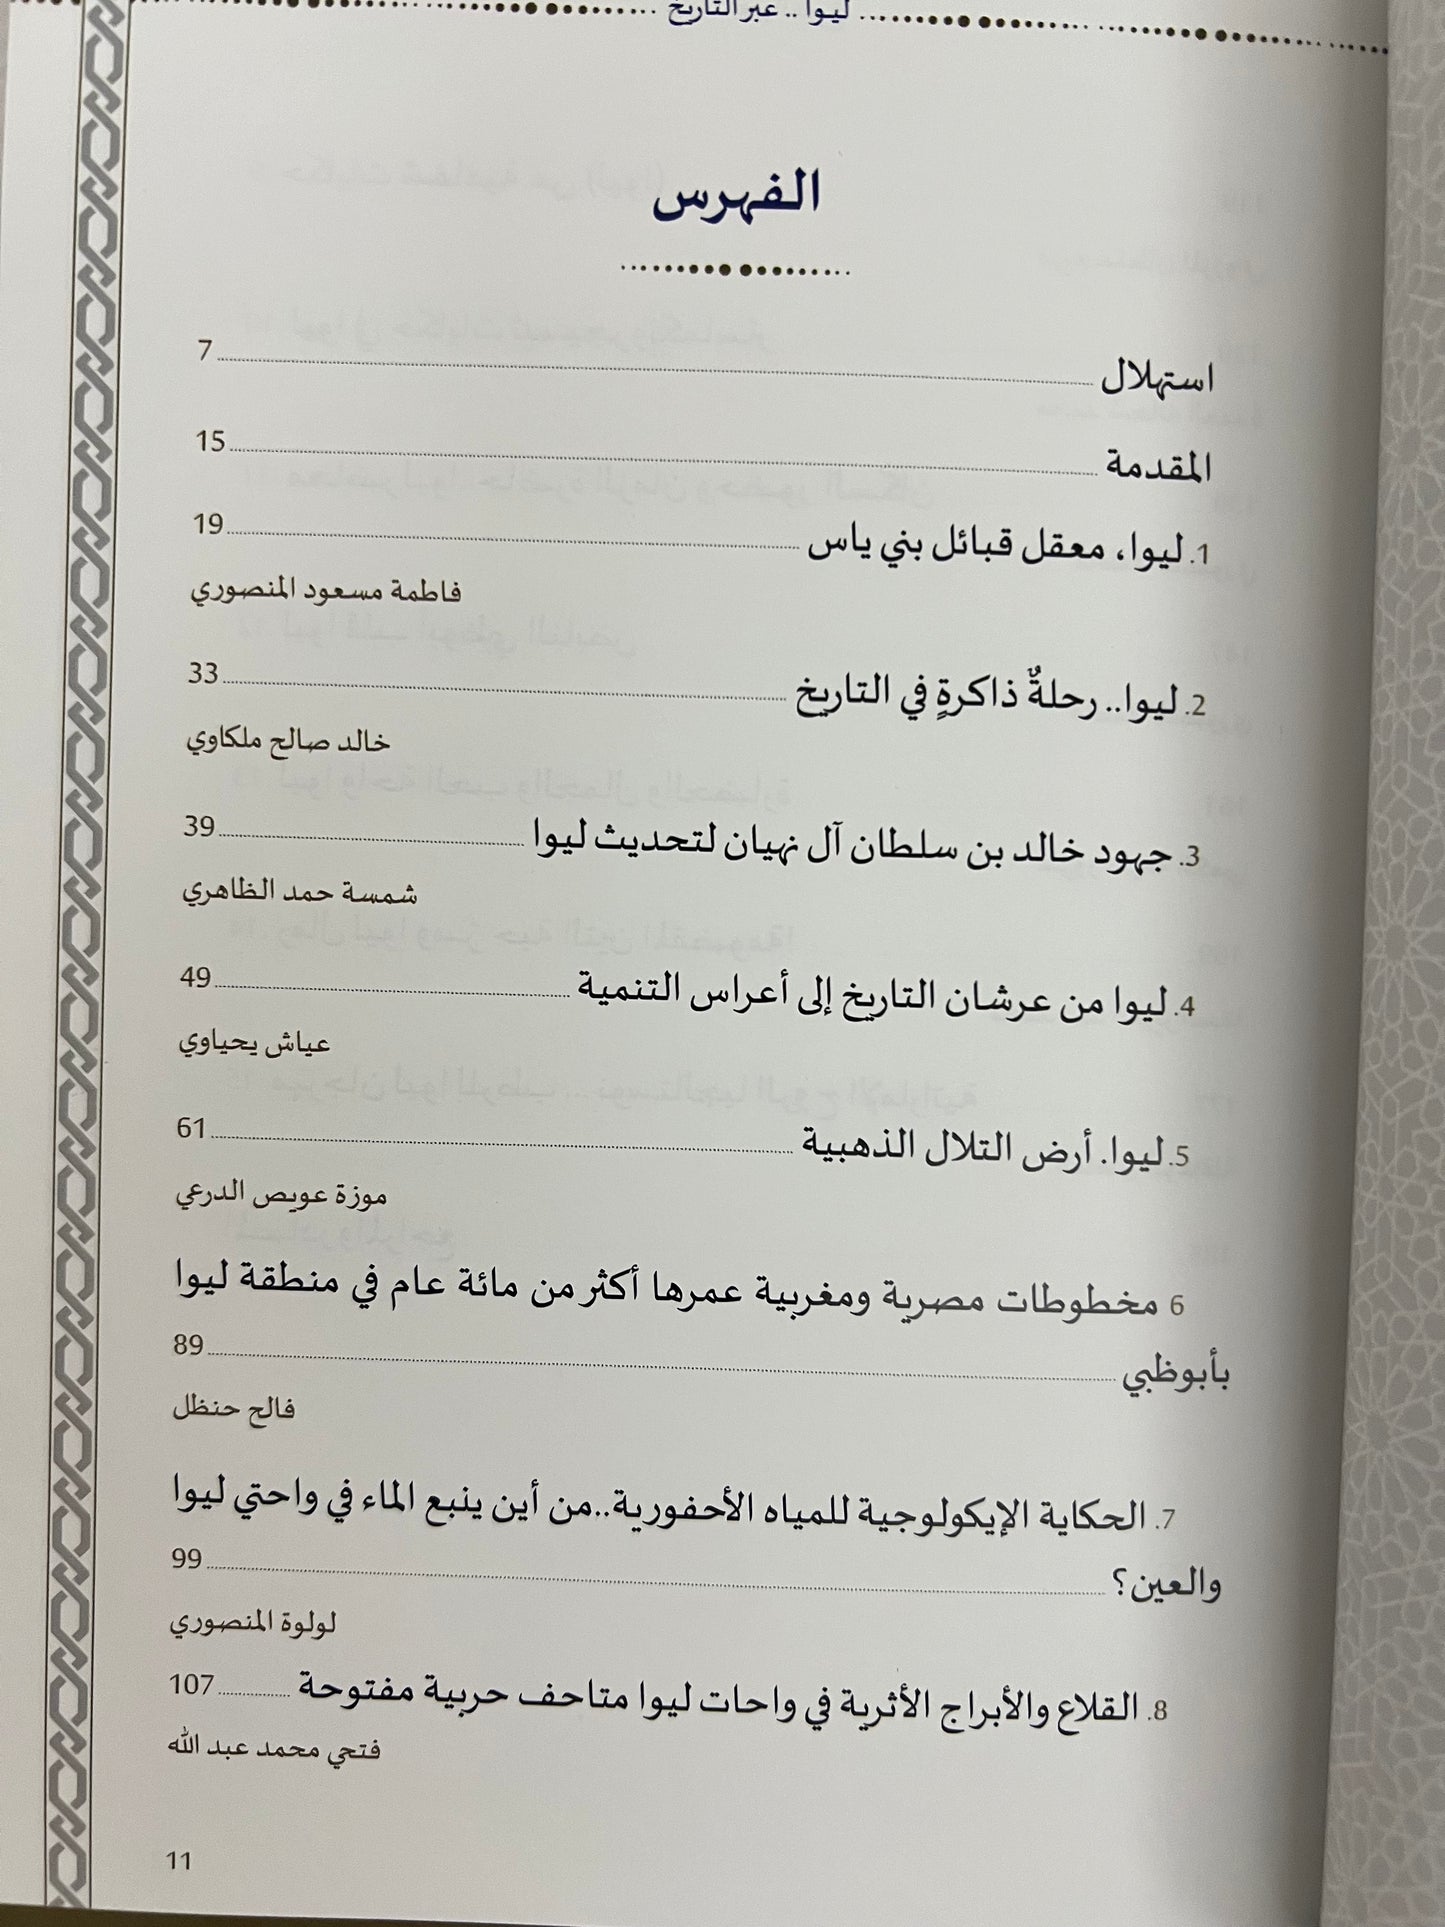 ليوا .. عبر التاريخ
الفهرس
استهلال 7
المقدمة 15
1. ليوا، معقل قبائل بني ياس 19
فاطمة مسعود المنصوري
2. ليوا.. رحلةُ ذاكرةٍ في التاريخ 33
خالد صالح ملكاوي
3. جهود خالد بن سلطان آل نهيان لتحديث ليوا 39
شمسة حمد الظاهري
4. ليوا من عرشان التاريخ إلى أعراس التنمية 49
عياش يحياوي
5. ليوا. أرض التلال الذهبية 61
موزة عويص الدرعي
6 مخطوطات مصرية ومغربية عمرها أكثر من مائة عام في منطقة ليوا
بأبوظبي 89
فالح حنظل
7. الحكاية الإيكولوجية للمياه الأحفورية..من أين ينبع الماء في واحتي ليوا
والعين؟ 99
لولوة المنصوري
8. القلاع والأبراج الأثرية في واحات ليوا متاحف حربية مفتوحة 107
فتحي محمد عبد الله
11